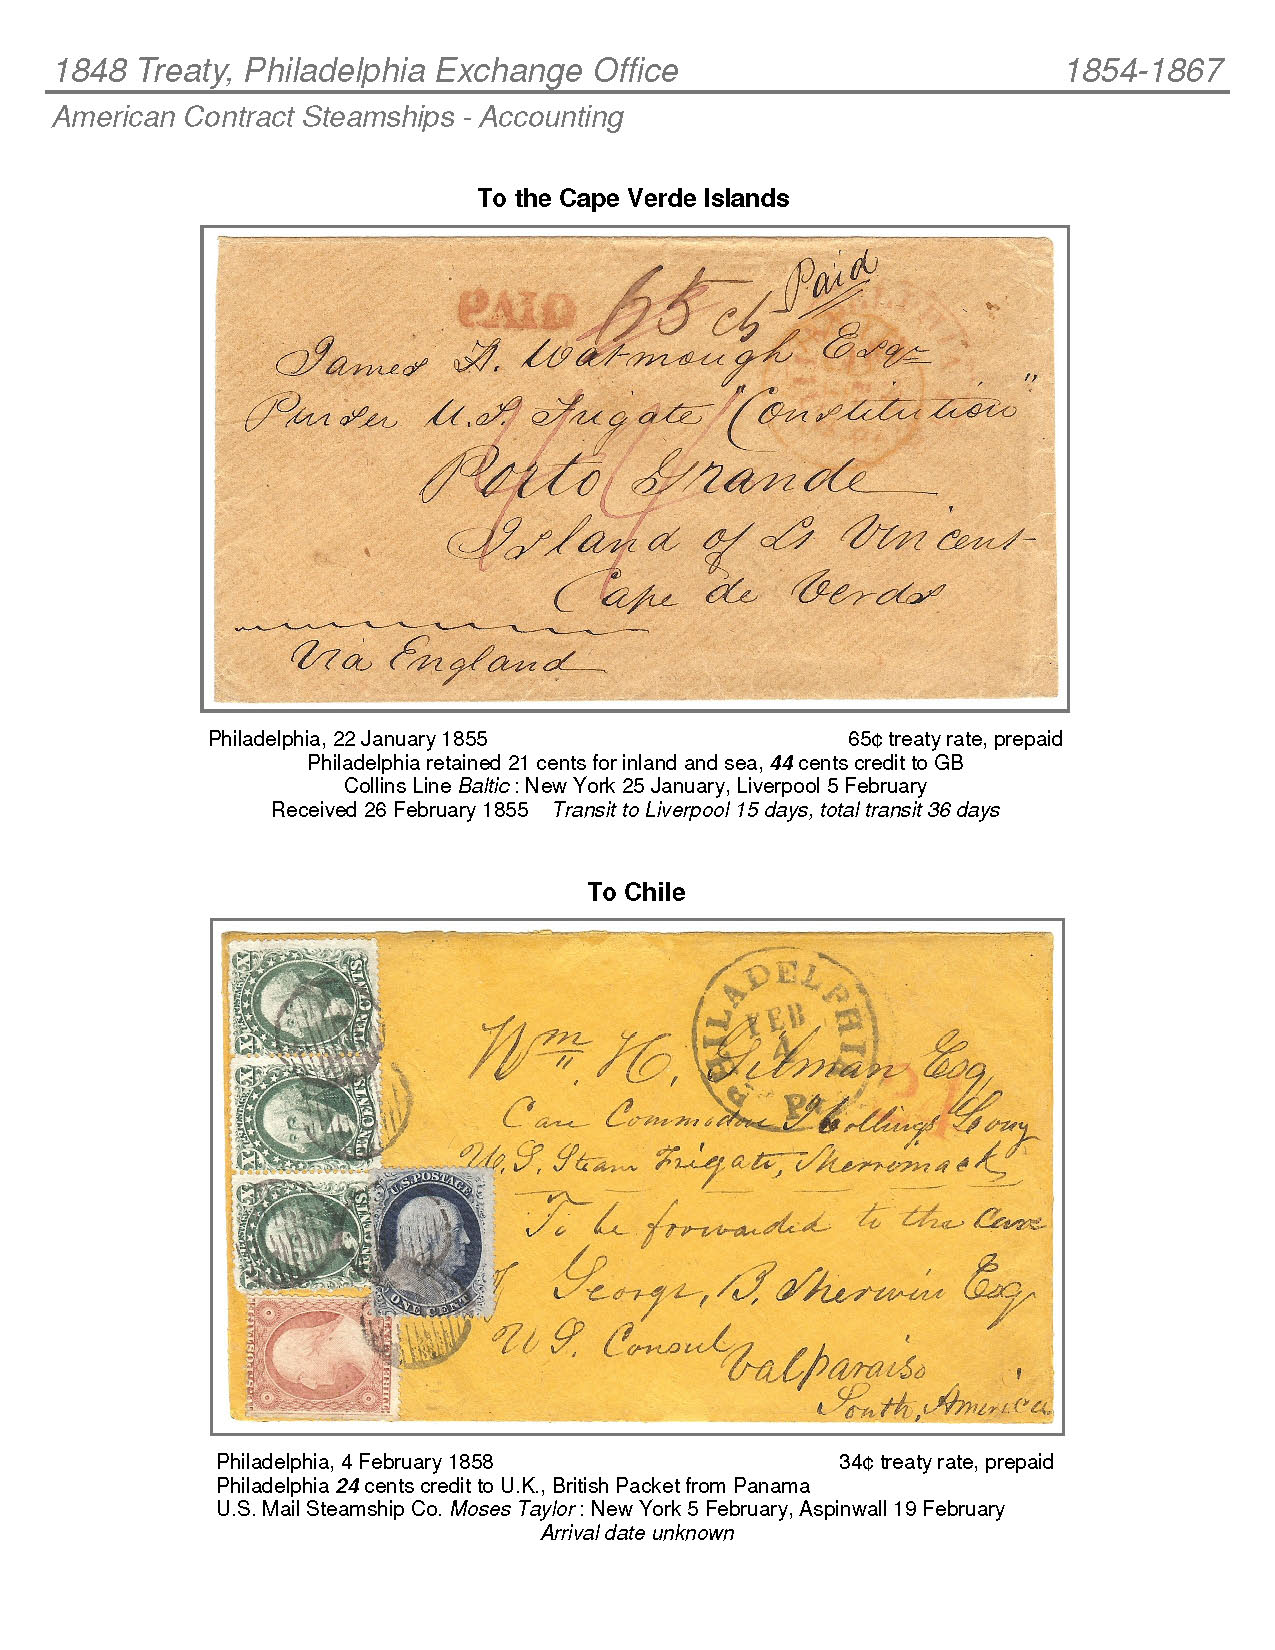 1848 Treaty, Philadelphia Exchange Office 1854-1867
American Contract Steamships - Accounting
To the Cape Verde Islands
PAID 65 cts Paid
James H. Watmough Esqr
Purser U.S. Frigate "Constitution"
44
Porto Grande
Island of St Vincent
Cape de Verds
Via England
Philadelphia, 22 January 1855 65¢ treaty rate, prepaid
Philadelphia retained 21 cents for inland and sea, 44 cents credit to GB
Collins Line Baltic : New York 25 January, Liverpool 5 February
Received 26 February 1855 Transit to Liverpool 15 days, total transit 36 days
To Chile
PHILADELPHIA
FEB
4
Pa
Wm. H. Gilman Esq
24
Care Commodore
U.S. Steam Frigate, Merromack
To be forwarded to the Care
of George, B, Merwin Esq
U S. Consul
Valparaiso
South, America
U.S. POSTAGE
ONE CENT
Philadelphia, 4 February 1858 34¢ treaty rate, prepaid
Philadelphia 24 cents credit to U.K., British Packet from Panama
U.S. Mail Steamship Co. Moses Taylor : New York 5 February, Aspinwall 19 February
Arrival date unknown